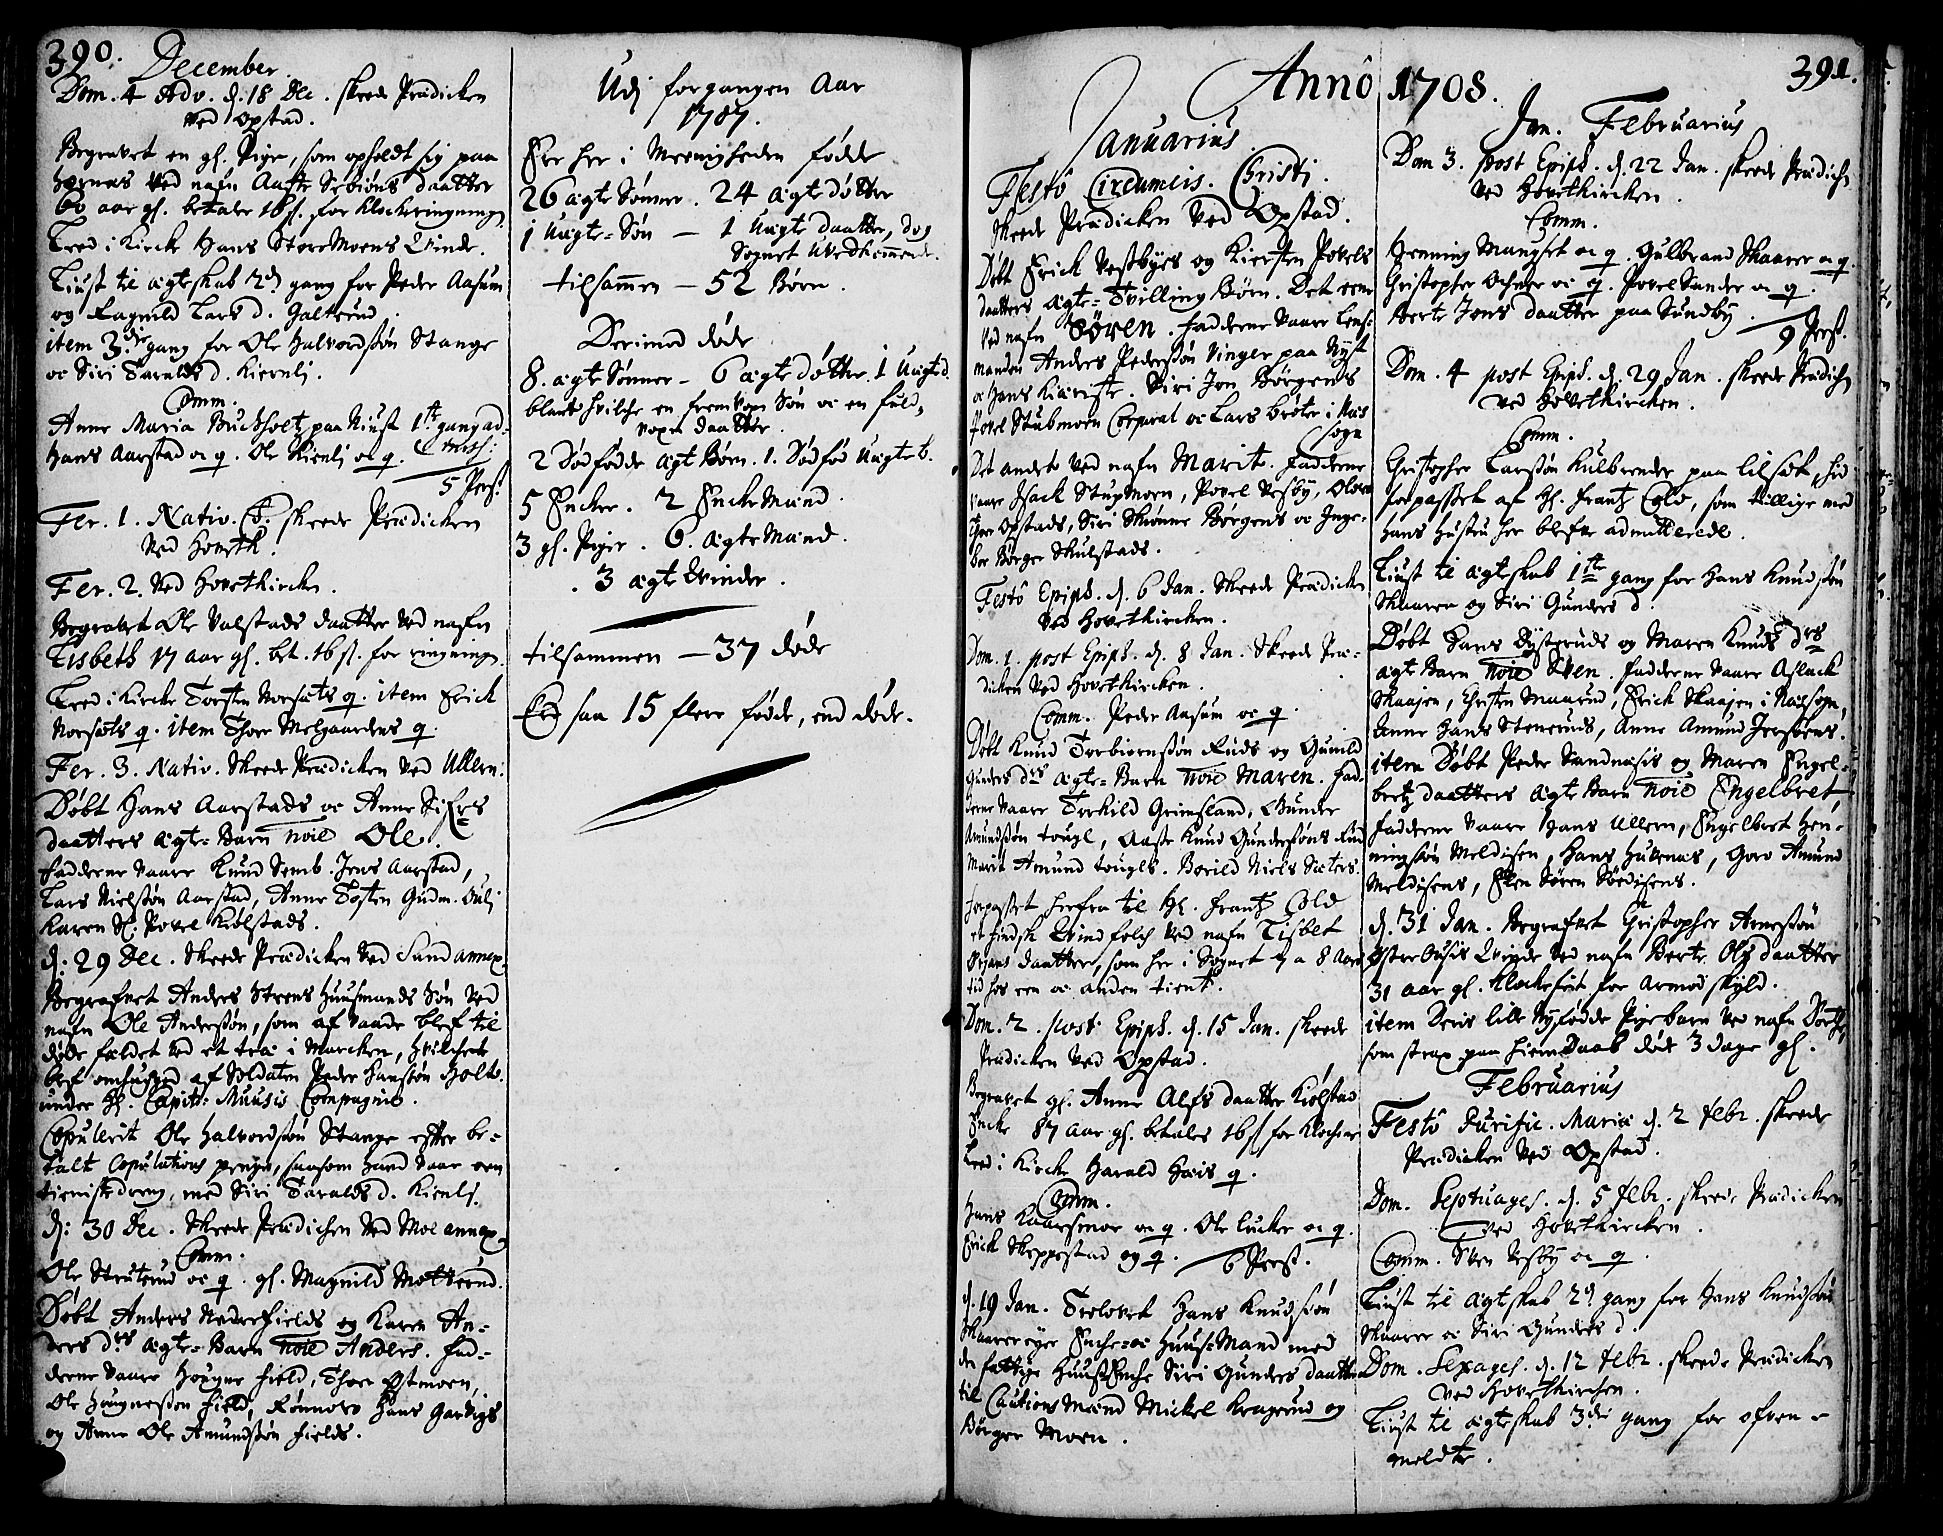 390. December
Dom. 4 Adv. d. 18 Dec. skeede Prædicken
ved Opstad.
Begravet en gl. Pige, som opholdt sig paa
Hornæs ved nafn Aaste daatter
60 aar gl. betaler 16 s. for Klockeringninge
Leed i Kircke Hans StoreMoens Qvinde.
Liust til ægteskab 2d gang for Peder Aasum
og Ragnild Lars d. Galterud.
item 3die gang for Ole Halvordssøn Stange
oc Siri Taralds d. Kiernlj.
Comm.
Anne Maria Buchholtz paa Niust 1ste gang ad-
Hans Aarstad oc q. Ole Kiernlj oc q. miss:
5 Pers.
Fer. 1. Nativ. C. skeede Prædicken
ved Hovetk.
Fer. 2. ved Hovetkircken.
Begravet Ole Valstads daatter ved nafn
Lisbeth 17 aar gl. bet. 16 s. for ringninge.
Leed i Kircke Torsten Norsæts q. item Erick
Norsæts q. item Thore Melgaardens q.
Fer. 3. Nativ. skeede Prædicken ved Ullern.
Døbt Hans Aarstads oc Anne
daatters ægte-Barn noie Ole.
Fadderne vaare Knud Semb. Jens Aarstad,
Lars Nielssøn Aarstad, Anne Tosten Gudm.
Karen Povel Kiølstads.
d: 29 Dec. skeede Prædicken ved Sand annex.
Begrafvet Anders Strens Huusmands Søn ved
nafn Ole Anderssøn, som af vaade blef til
døde faldet ved et træ i Marcken, hvilchet
blef omhugged af Soldaten Peder Hanssøn Holt.
under Hr. Capit: Muusis Compagnie.
Copulerit Ole Halvordssøn Stange efter be-
talt Copulations penge, saasom hand vaar een
tienistedreng, med Siri Taralds d. Kienlj.
d: 30 Dec. skeede Prædichen ved Moe annex.
Comm.
Ole Struterud oc q. gl. Magnild Motterud.
Døbt Anders Nederfields og Karen An-
ders drs ægte-Barn noie Anders. Fad-
derne vaare Hougne field, Thore Østmoen,
Ole Hougnessøn field, Rønnov Hans Gardvigs
og Anne Ole Amundssøn fields.
Udj forgangen Aar
1707.
Ere her i Meenigheden fødde
26 ægte Sønner. 24 ægte døtter
1 Uægte-Søn — 1 Uægte daatter, dog
Sognet Uvedkommende.
tilsammen — 52 Børn.
Derimod døde
8. ægte Sønner - 6 ægte døtter. 1 Uægt d.
blant hvilche en fremvoxen Søn oc en fuld-
voxen daatter.
2 Dødfødde ægt Børn. 1. Dødfød Uægte b.
5 Encker. 2 EnckeMænd.
3 gl. Piger. 6. ægteMænd.
3 ægte Qvinder.
tilsammen — 37 døde
Ere saa 15 flere fødde, end døde.
Anno 1708.
391.
Ianuarius
Festô Circumcis. Christi.
skeede Prædicken ved Opstad.
Døbt Erick Vestbyes og Kiersten Povels
daatters ægte-Tvilling Børn. Det eene
ved nafn Søren. Fadderne vaare Lens-
manden Anders Pederssøn Vinger paa Nyst
oc hans Kiæreste. Siri Jon Børgens
Povel Stubmoen Corporal oc Lars brøter i Næs
Sogn
Det andet ved nafn Marit. Fadderne
vaare Isack Stupmoen, Povel Vesbÿ,
Opstads, Siri Børgens oc Inge-
bor Børger Skulstads.
Festô Epiph. d. 6 Jan. skeede Prædicken
ved Hovetkircken.
Dom. 1. post Epiph. d. 8 Jan. skeede Præ-
dicken ved Hovetkircken.
Comm. Peder Aasum oc q.
Døbt Knud Torbiørnssøn Ruds og Gunild
Gunders drs ægte-Barn noie Maren. Fad-
derne vaare Torkild Grimsland, Gunder
Amundssøn tougl, Aaste Knud Gunderssøns Rud
Marit Amund tougls. Borild Niels Sæters.
Forpasset herfra til Hr. Frantz Cold
et Qvindfolch ved nafn Lisbet
daatter, som her i Sognet 7 a 8 Aars
tid hos een oc anden tient.
Dom. 2. post Epiph. d. 15 Jan. skeede
Prædicken ved Opstad.
Begravet gl. Anne Alfs daatter Kiølstad
Encke 87 aar gl. betalte 16 s. for Klockene
Leed i Kircke Harald Hæis q.
Comm.
Hans Kaarsmoe oc q. Ole lucke oc q.
Erick Skeppestad og q. — 6 Pers.
d. 19 Jan. Trolovet Hans Knudssøn
Skaarer eyer Encke- oc Huus-Mand med
den fattige HuusEnche Siri Gunders daatter
til Cautions Mænd Mickel Kragerud og
Børger Moen.
Jan. Februarius
Dom 3. post Epiph. d. 22 Jan. skeede Prædich.
ved Hovetkircken.
Comm.
Henning Mangset oc q. Gulbrand Skaarer oc q.
Christopher oc q. Povel Sander oc q.
Berte Jons daatter paa Sundby.
9 Pers.
Dom. 4 post Epiph. d. 29 Jan. skeede Prædich
ved Hovetkircken.
Comm.
Christopher Larssøn Kulbrender paa lilsæt, hid
forpasset af Hr. Frantz Cold, som tillige med
hans hustru her blefve admitterede.
Liust til ægteskab 1ste gang for Hans Knudssøn
Skaarer og Siri Gunders d.
Døbt Hans Dysteruds og Maren Knuds drs
ægt Barn noie Sven. Fadderne vaare Aslack
Skaajen, Christen Maarud, Erick Skaajen i Næssogn,
Anne Hans Steneruds, Anne Amund Jersøens.
item Døbt Peder Sandnæsis og Maren Engel-
bertz daatters ægte Barn noie Engelbret,
Fadderne vaare Hans Ullern, Engelbret Hen-
ningssøn Meldisen, Hans Huknæs, Goro Amund
Meldisens, Ellen Søren Sørdisens.
d. 31 Jan. Begrafvet Christopher Arnessøn
Østre Qvinde ved nafn Berte Ols daatter
31 aar gl. Klockefrit for Armod skyld.
item Deris lille Nyfødde Pigebarn ved nafn
som strax paa hiemDaab døde 3 dage gl.
Februarius
Festô Purific. Mariæ d. 2 febr. skeede
Prædicken ved Opstad.
Dom. Septuages. d. 5 febr. skeede Prædicken
ved Hovetkircken.
Comm. Sven Vesby oc q.
Liust til ægteskab 2d gang for Hans Knudssøn
Skaarer oc Siri Gunders d.
Dom. Sexages. d. 12 febr. skeede Prædicken
ved Hovetkirchen.
Liust til ægteskab 3die gang for ofven-
meldte.